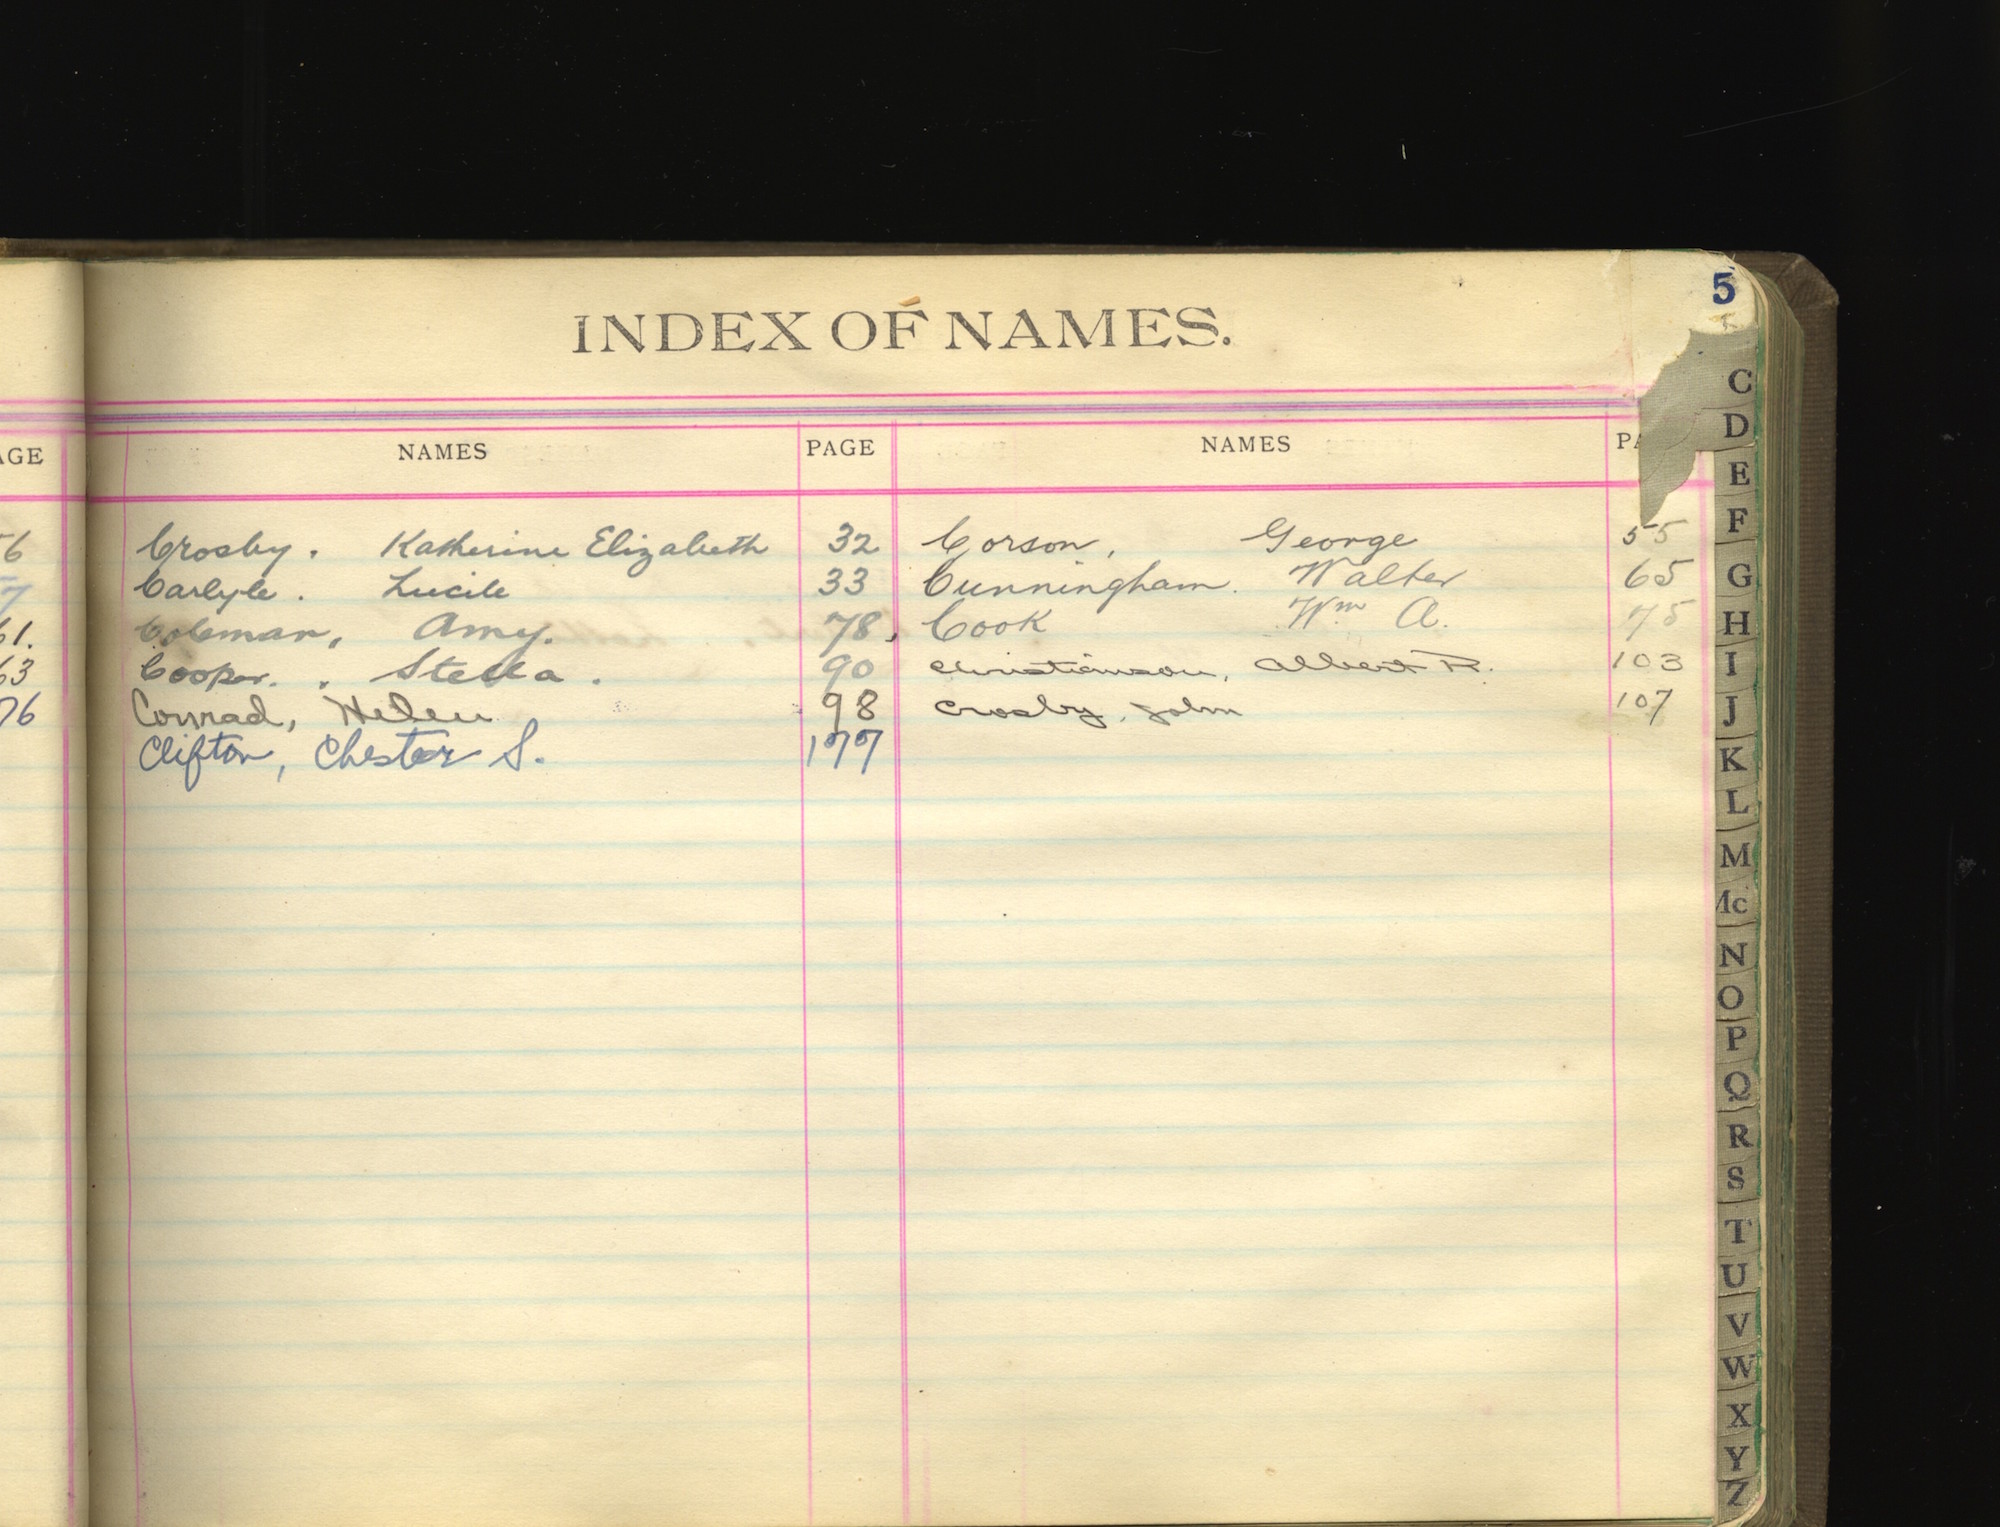 5
INDEX OF NAMES.
AGE
NAMES PAGE NAMES PA
6 Crosby. Katherine Elizabeth 32 Corson, George 55
7 Carlyle. Lucile 33 Cunningham. Walter 65
61. Coleman, Amy. 78 Cook Wm A. 75
63 Cooper. Stella. 90 Christianson, Albert R. 103
76 Conrad, Helen 98 Crosby, John 107
Clifton, Chester S. 177
C
D
E
F
G
H
I
J
K
L
M
Mc
N
O
P
Q
R
S
T
U
V
W
X
Y
Z